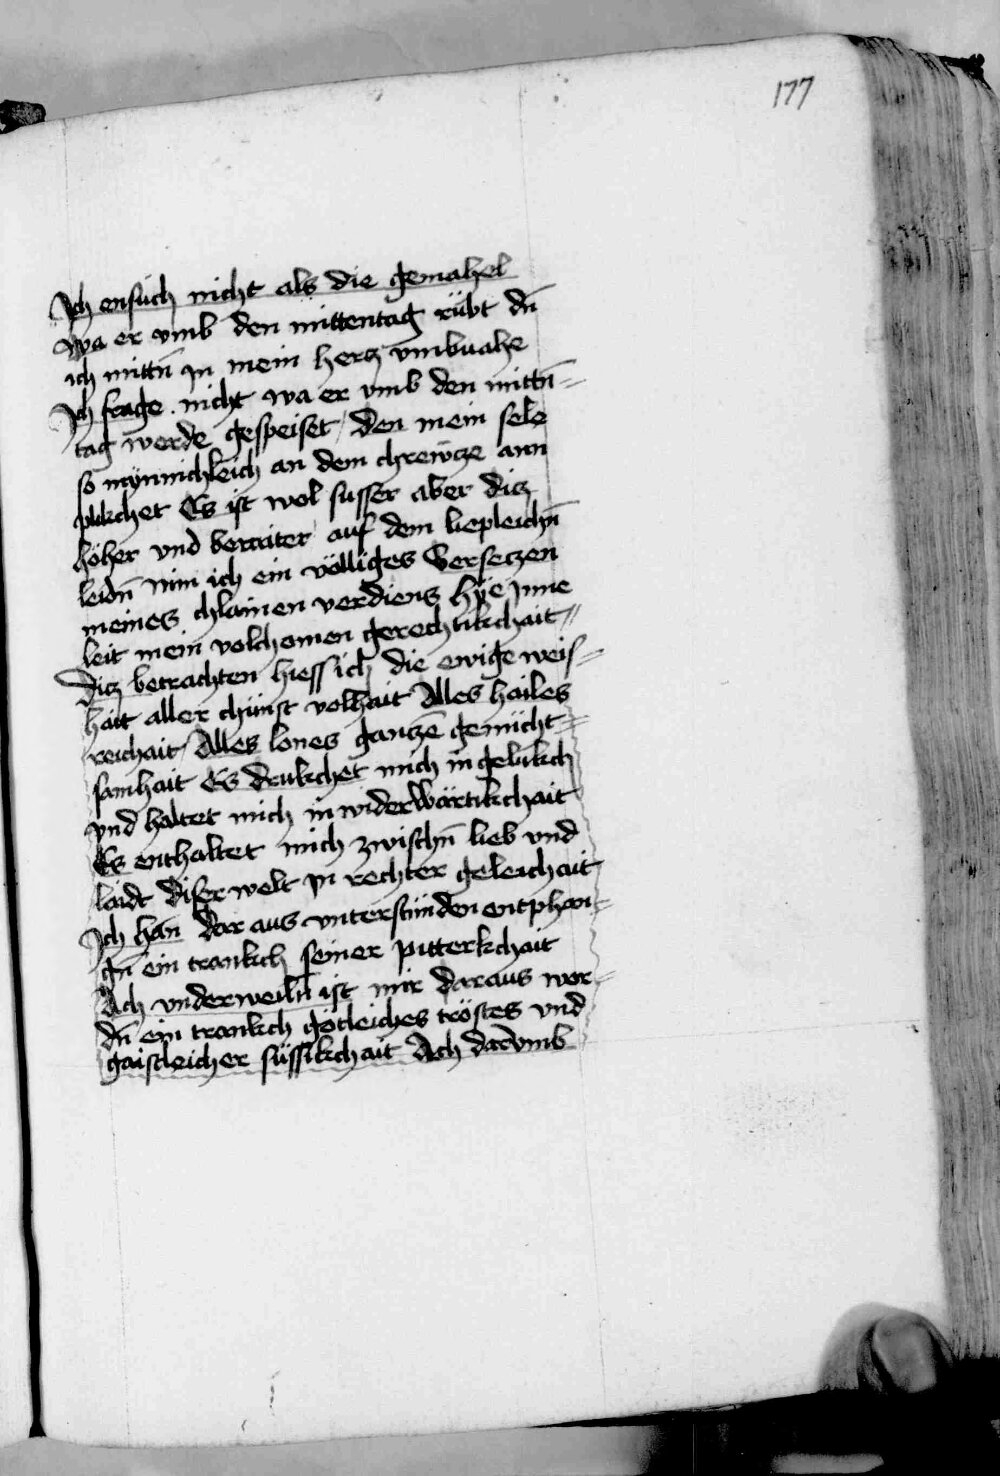 177
Ich ensuch nicht als die gemahel
wa er vmb den mittentag růbt dn̄
ich mittn̄ in mein hercz vmbuahe
Ich frage nicht wa er vmb den mittn̄=
tag werde gespeiset / den mein sele
so mynnichleich an dem chrewcze ann
plikchet Es ist wol susser aber dicz
höher vnd berraiter auf dem liepleichn̄
leidn̄ nim ich ein völliges Verseczen
meines chlainen verdiens hye Inne
leit mein volchomen gerechtikchait=
dicz betrachten hiess ich die ewige weis=
hait aller chunst volhait Alles hailes
reichait / Alles lones ganczē genücht=
samhait Es drukchet mich in gelukch
vnd haltet mich in widerwärtikchait
Es enthaltet mich zwischn̄ lieb vnd
laidt diser welt in rechter geleichait
Ich han dar aus vnterstunden entphan=
gn̄ ein trankch seiner pitterkchait
Ach vnderweiln̄ ist mir daraus wor=
dn̄ ein trankch götleiches tröstes vnd
gaistleicher süssikchait Ach darvmb